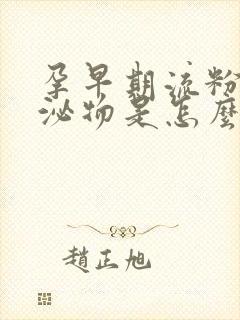 孕早期流粉
泌物是怎麼
趙正旭